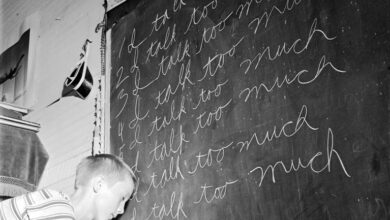 1 I th
2 I talk too m
3 I talk too much
4 I talk too much
I talk too much
I talk too much
I talk too much